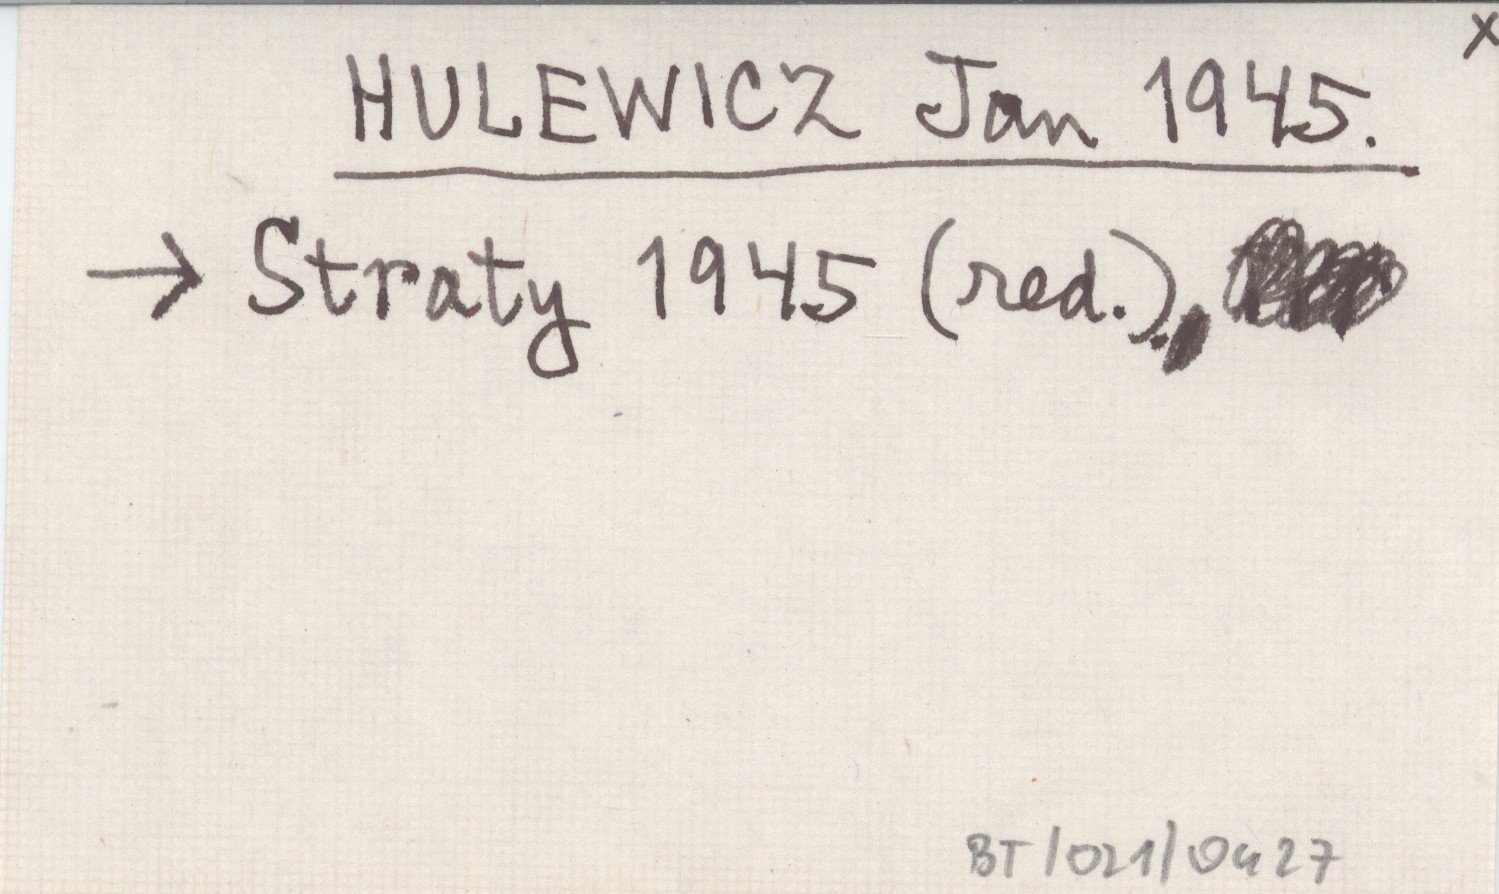 x
HULEWICZ Jan 1945.
→ Straty 1945 (red.).
BT/021/0427